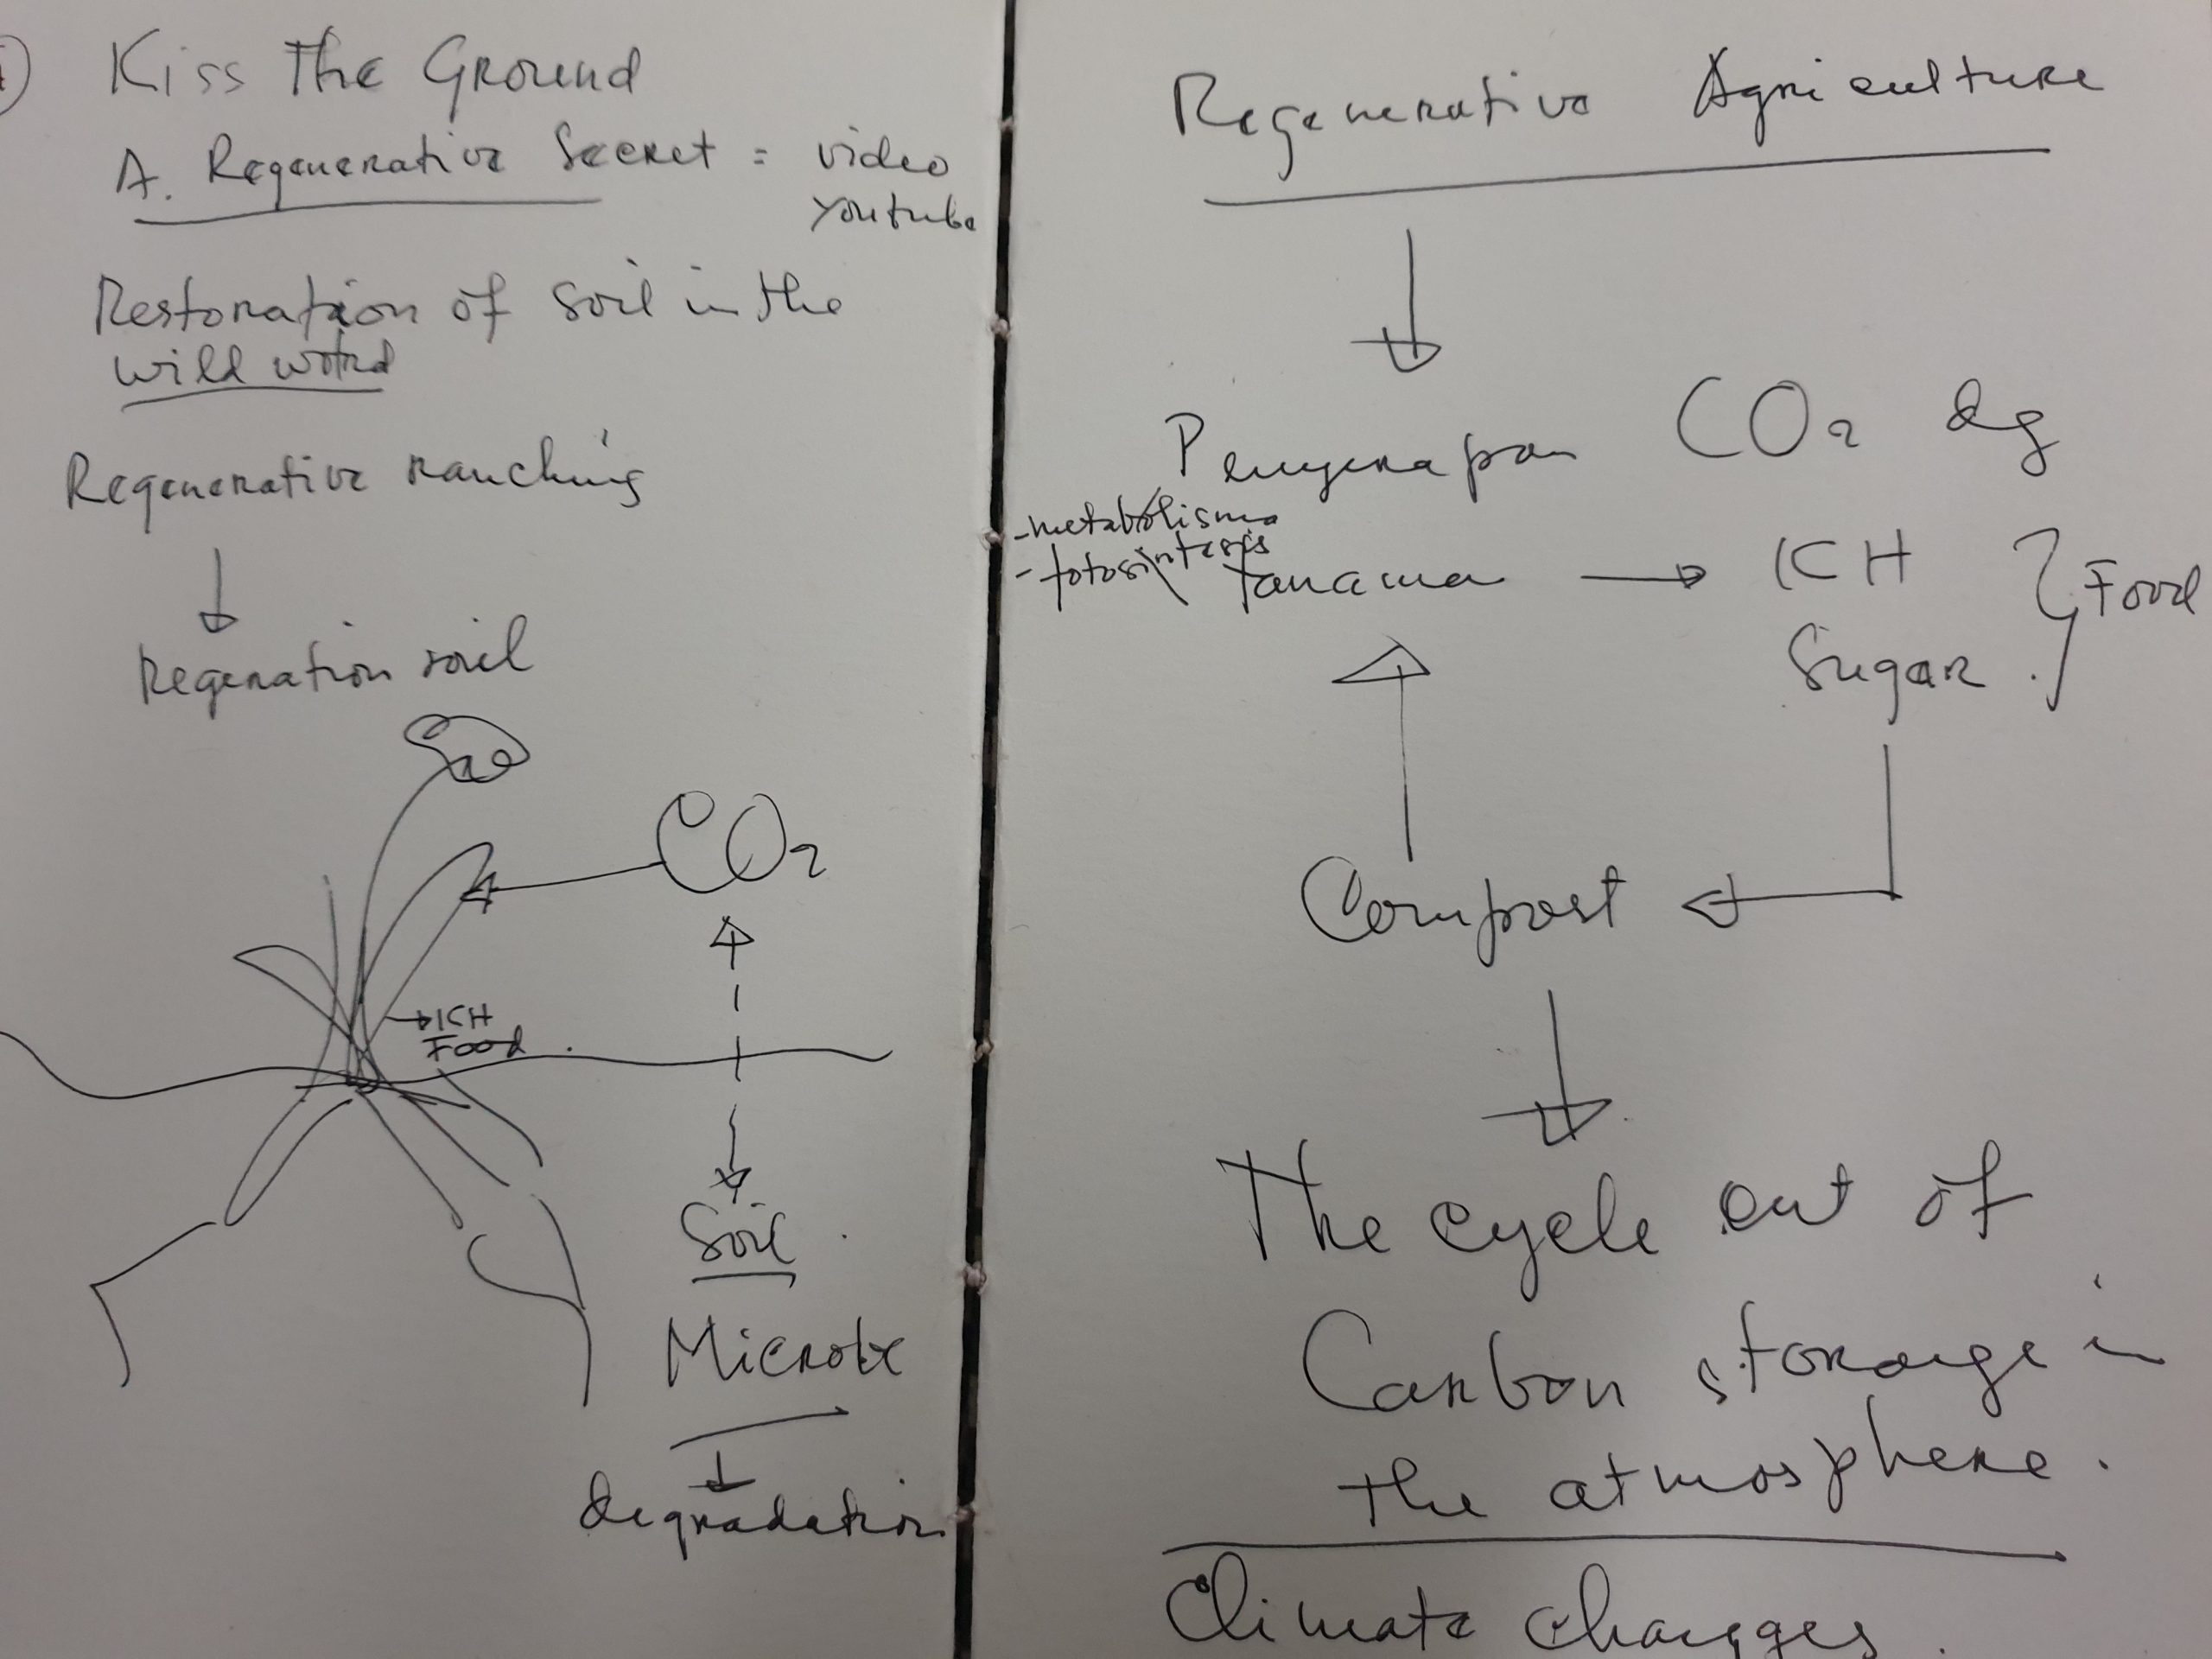 Kiss The Ground
A. Regenerative Secret = video
youtube
Restoration of soil in the
will world
Regenerative ranching
Regenation soil
CO2
KH
Food
Soil
Microbe
degradation
Regenerative Agriculture
Penyerapan CO2 dg
- metabolisme
- fotosintesis
tanaman → KH } Food
Sugar
Compost
The cycle out of
Carbon storage in
the atmosphere.
Climate changges.